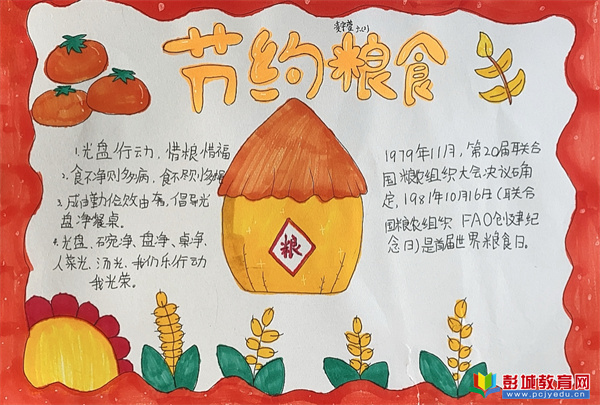 节约粮食
1.光盘行动,惜粮惜福
2.食不净则多病,食不则多
3.成由勤俭败由奢,倡导光
盘净餐桌。
4.光盘、碗净、盘净、桌净、
人菜光、汤光、我们乐行动
我光荣。
粮
1979年11月,第20届联合
国粮农组织大会决议确
定,1981年10月16日(联合
国粮农组织 FAO创建纪
念日)是首届世界粮食日。
彭城教育网
www.pcjyedu.cn